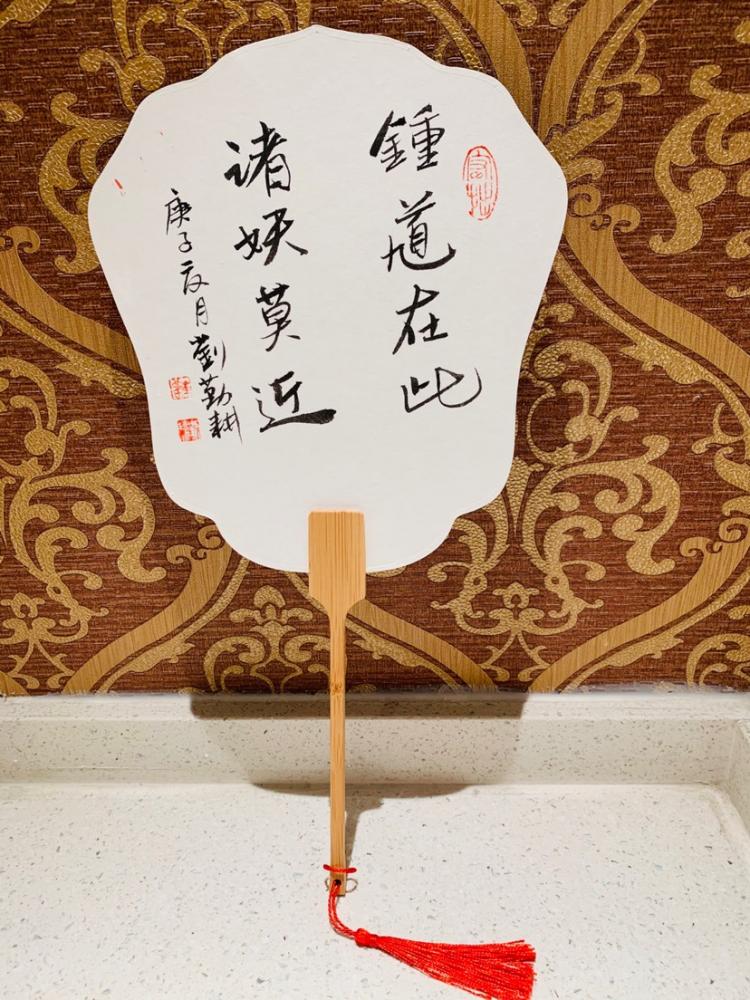 鍾馗在此
諸妖莫近
庚子夏月劉勤耕